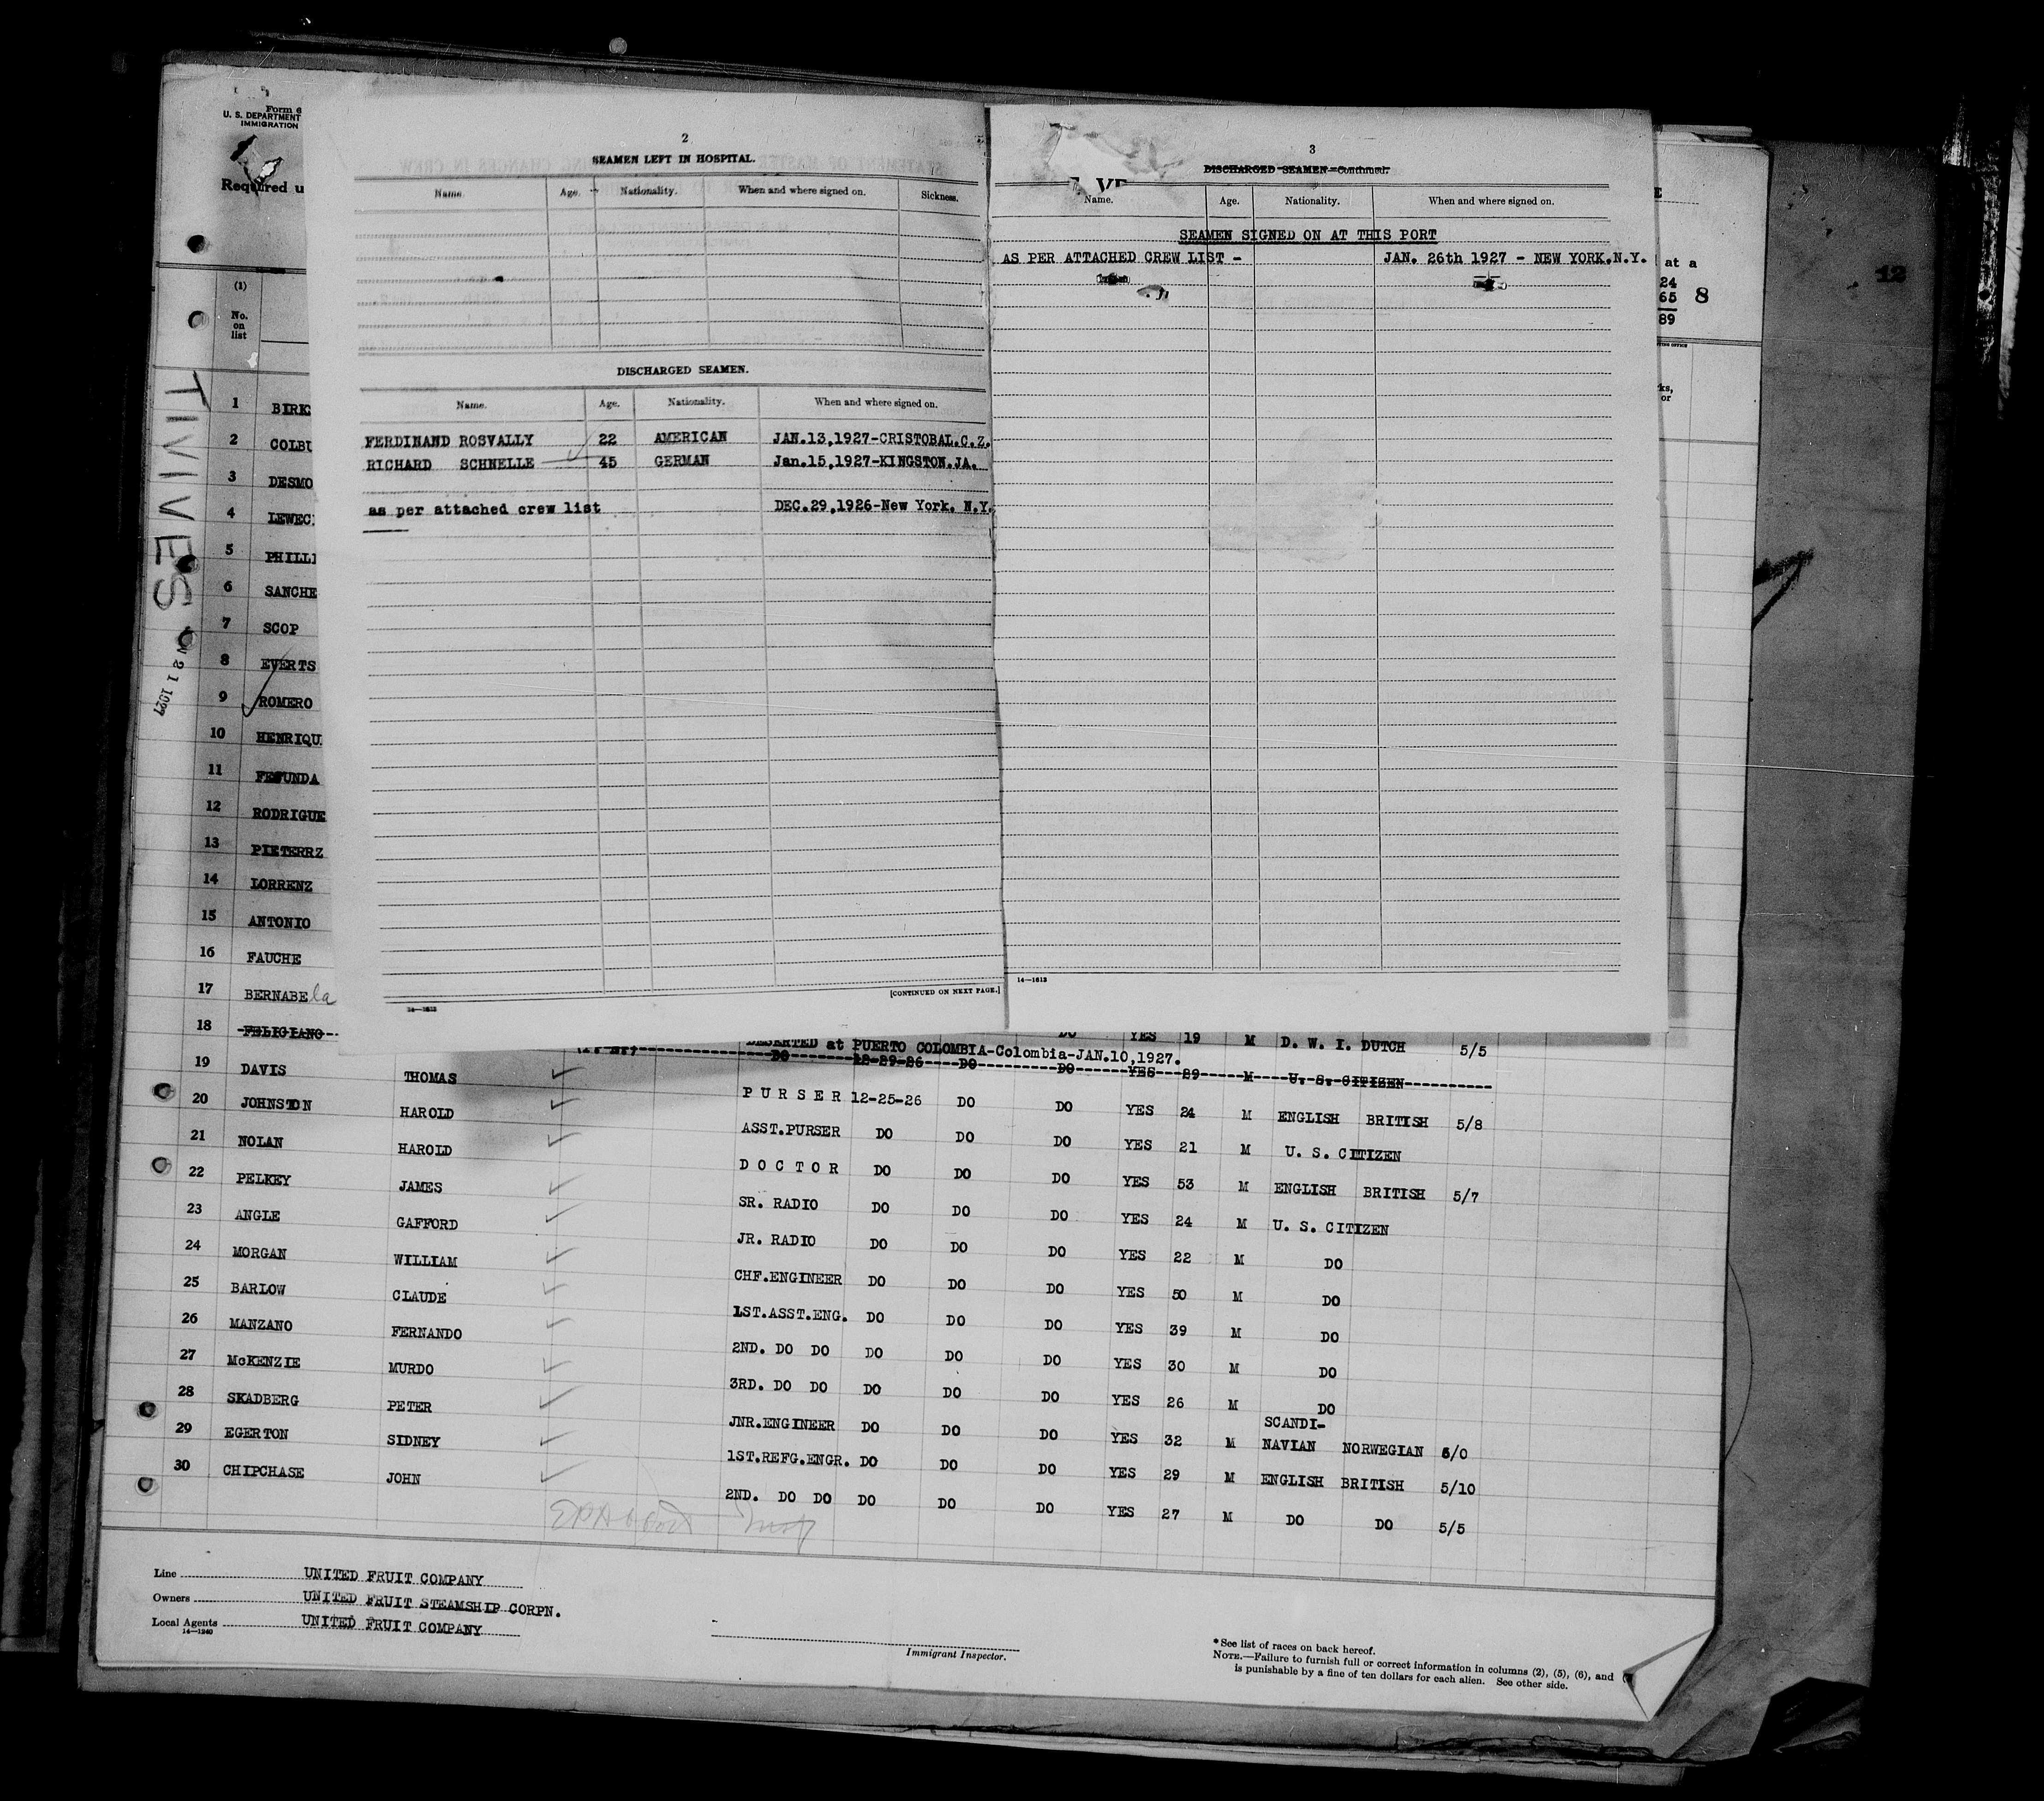 Form 6
U. S. DEPARTMENT
IMMIGRATION
Required u
(1)
No.
on
list
TIVIVES
2 1 1927
2
SEAMEN LEFT IN HOSPITAL.
Name. Age. Nationality. When and where signed on. Sickness.
DISCHARGED SEAMEN.
Name. Age. Nationality. When and where signed on.
FERDINAND ROSVALLY 22 AMERICAN JAN.13,1927-CRISTOBAL.C.Z.
RICHARD SCHNELLE 45 GERMAN Jan.15,1927-KINGSTON.JA.
as per attached crew list DEC.29,1926-New York. N.Y.
[CONTINUED ON NEXT PAGE.]
14—1613
3
DISCHARGED SEAMEN—Continued.
Name. Age. Nationality. When and where signed on.
SEAMEN SIGNED ON AT THIS PORT
AS PER ATTACHED CREW LIST - JAN. 26th 1927 - NEW YORK.N.Y.
14—1613
E
at a
24
65 8
89
ks,
or
12
1 BIRK
2 COLBU
3 DESMO
4 LEWEC
5 PHILLI
6 SANCHE
7 SCOP
8 EVERTS
9 ROMERO
10 HENRIQU
11 FESUNDA
12 RODRIGUE
13 PIETERRZ
14 LORRENZ
15 ANTONIO
16 FAUCHE
17 BERNABE la
18 FELICIANO
DO YES 19 M D. W. I. DUTCH 5/5
DESERTED at PUERTO COLOMBIA-Colombia-JAN.10,1927.
DO 12-29-26 DO DO YES 29 M U. S. CITIZEN
19 DAVIS THOMAS P U R S E R 12-25-26 DO DO YES 24 M ENGLISH BRITISH 5/8
20 JOHNSTON HAROLD ASST.PURSER DO DO DO YES 21 M U. S. CITIZEN
21 NOLAN HAROLD D O C T O R DO DO DO YES 53 M ENGLISH BRITISH 5/7
22 PELKEY JAMES SR. RADIO DO DO DO YES 24 M U. S. CITIZEN
23 ANGLE GAFFORD JR. RADIO DO DO DO YES 22 M DO
24 MORGAN WILLIAM CHF.ENGINEER DO DO DO YES 50 M DO
25 BARLOW CLAUDE 1ST.ASST.ENG. DO DO DO YES 39 M DO
26 MANZANO FERNANDO 2ND. DO DO DO DO DO YES 30 M DO
27 McKENZIE MURDO 3RD. DO DO DO DO DO YES 26 M DO
28 SKADBERG PETER JNR.ENGINEER DO DO DO YES 32 M SCANDI-
NAVIAN NORWEGIAN 6/0
29 EGERTON SIDNEY 1ST.REFG.ENGR. DO DO DO YES 29 M ENGLISH BRITISH 5/10
30 CHIPCHASE JOHN 2ND. DO DO DO DO DO YES 27 M DO DO 5/5
Line UNITED FRUIT COMPANY
Owners UNITED FRUIT STEAMSHIP CORPN.
Local Agents UNITED FRUIT COMPANY
14—1240
Immigrant Inspector.
*See list of races on back hereof.
NOTE.—Failure to furnish full or correct information in columns (2), (5), (6), and
is punishable by a fine of ten dollars for each alien. See other side.